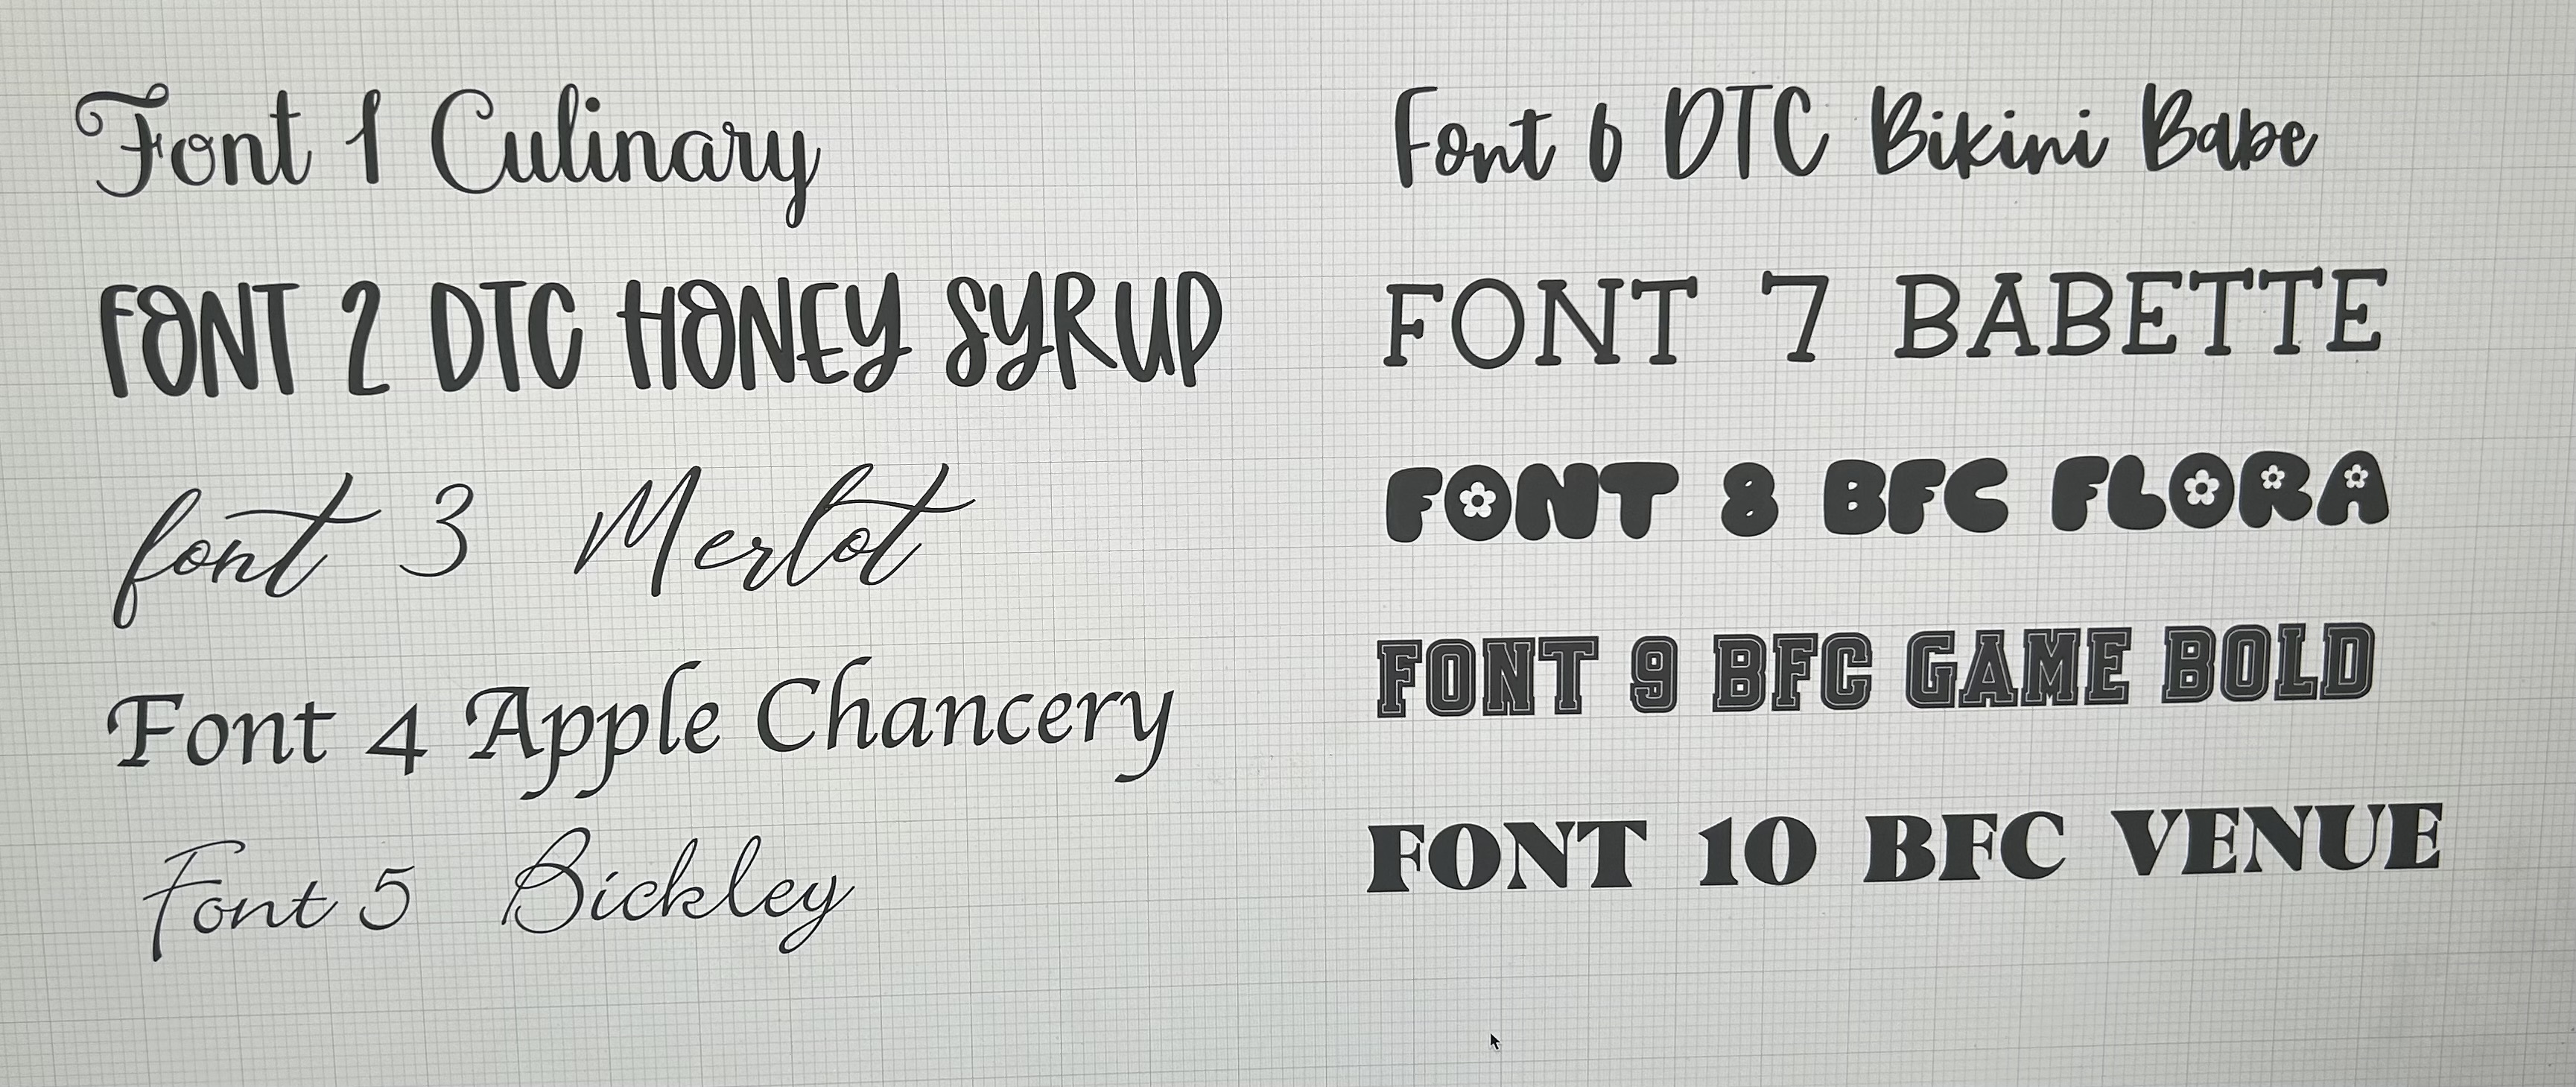 Font 1 Culinary
FONT 2 DTC HONEY SYRUP
font 3 Merlot
Font 4 Apple Chancery
Font 5 Bickley
Font 6 DTC Bikini Babe
FONT 7 BABETTE
FONT 8 BFC FLORA
FONT 9 BFC GAME BOLD
FONT 10 BFC VENUE